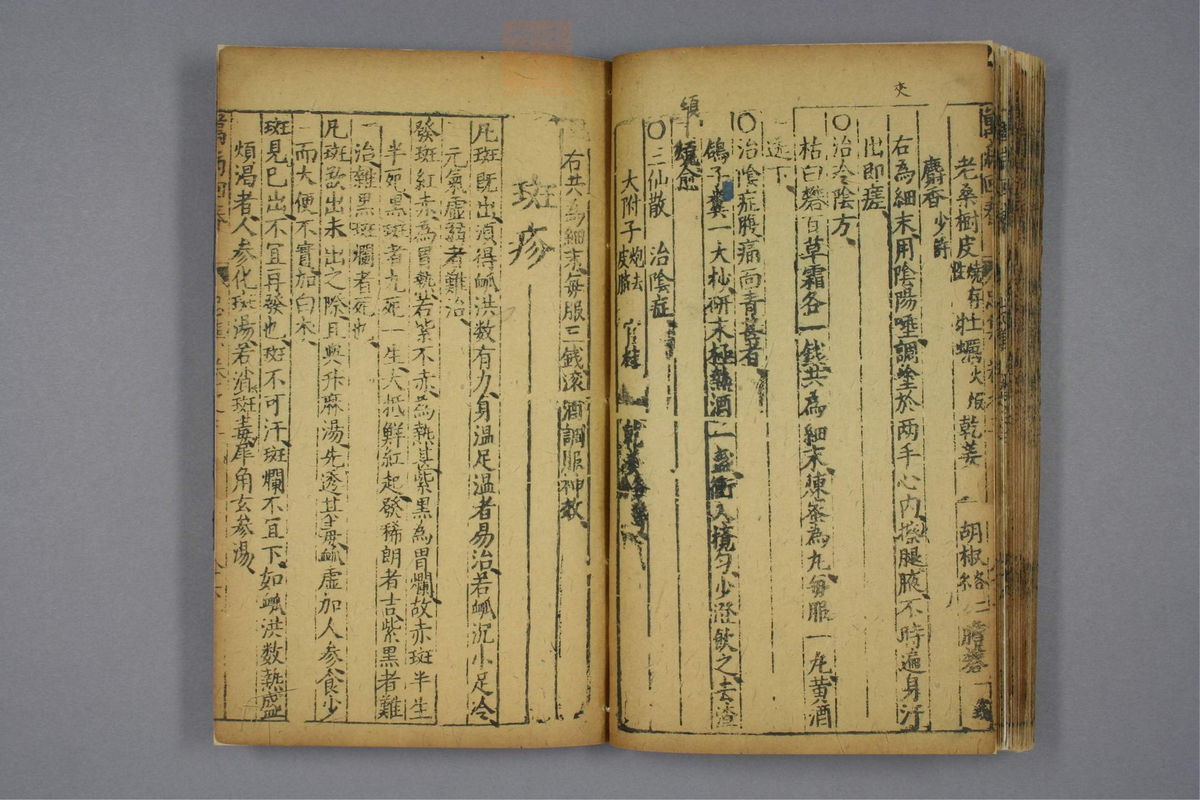 夾
老桑樹皮燒存性 牡蠣火煅 乾姜一 胡椒各二
麝香少許
右為細末用陰陽唾調塗於两手心内擦腿腋不時遍身汗
出即瘥
治冷陰方
枯白礬百草霜各一錢共為細末煉蜜為丸每服一丸黄酒
送下
〇治陰症腹痛面青甚者
鴿子糞一大抄研末極熱酒一盞衝入攪匀少澄飲之去渣
頓
頓愈
〇三仙散 治陰症
大附子炮去皮臍 官桂 乾姜各等
右共為細末每服三錢滚酒調服神效
斑疹
凡斑既出須得脉洪数有力身温足温者易治若脉沉小足冷
元氣虚弱者難治
發斑紅赤為胃熱若紫不赤為熱甚紫黑為胃爛故赤斑半生
半死黑斑者九死一生大抵鮮紅起發稀朗者吉紫黑者難
治雜黑斑爛者死也
一凡斑欲出未出之際且與升麻湯先透其毒脉虚加人参食少
而大便不實加白术
一斑見已出不宜再發也斑不可汗斑爛不宜下如脉洪数熱盛
煩渴者人参化斑湯若消斑毒犀角玄参湯
萬病回春